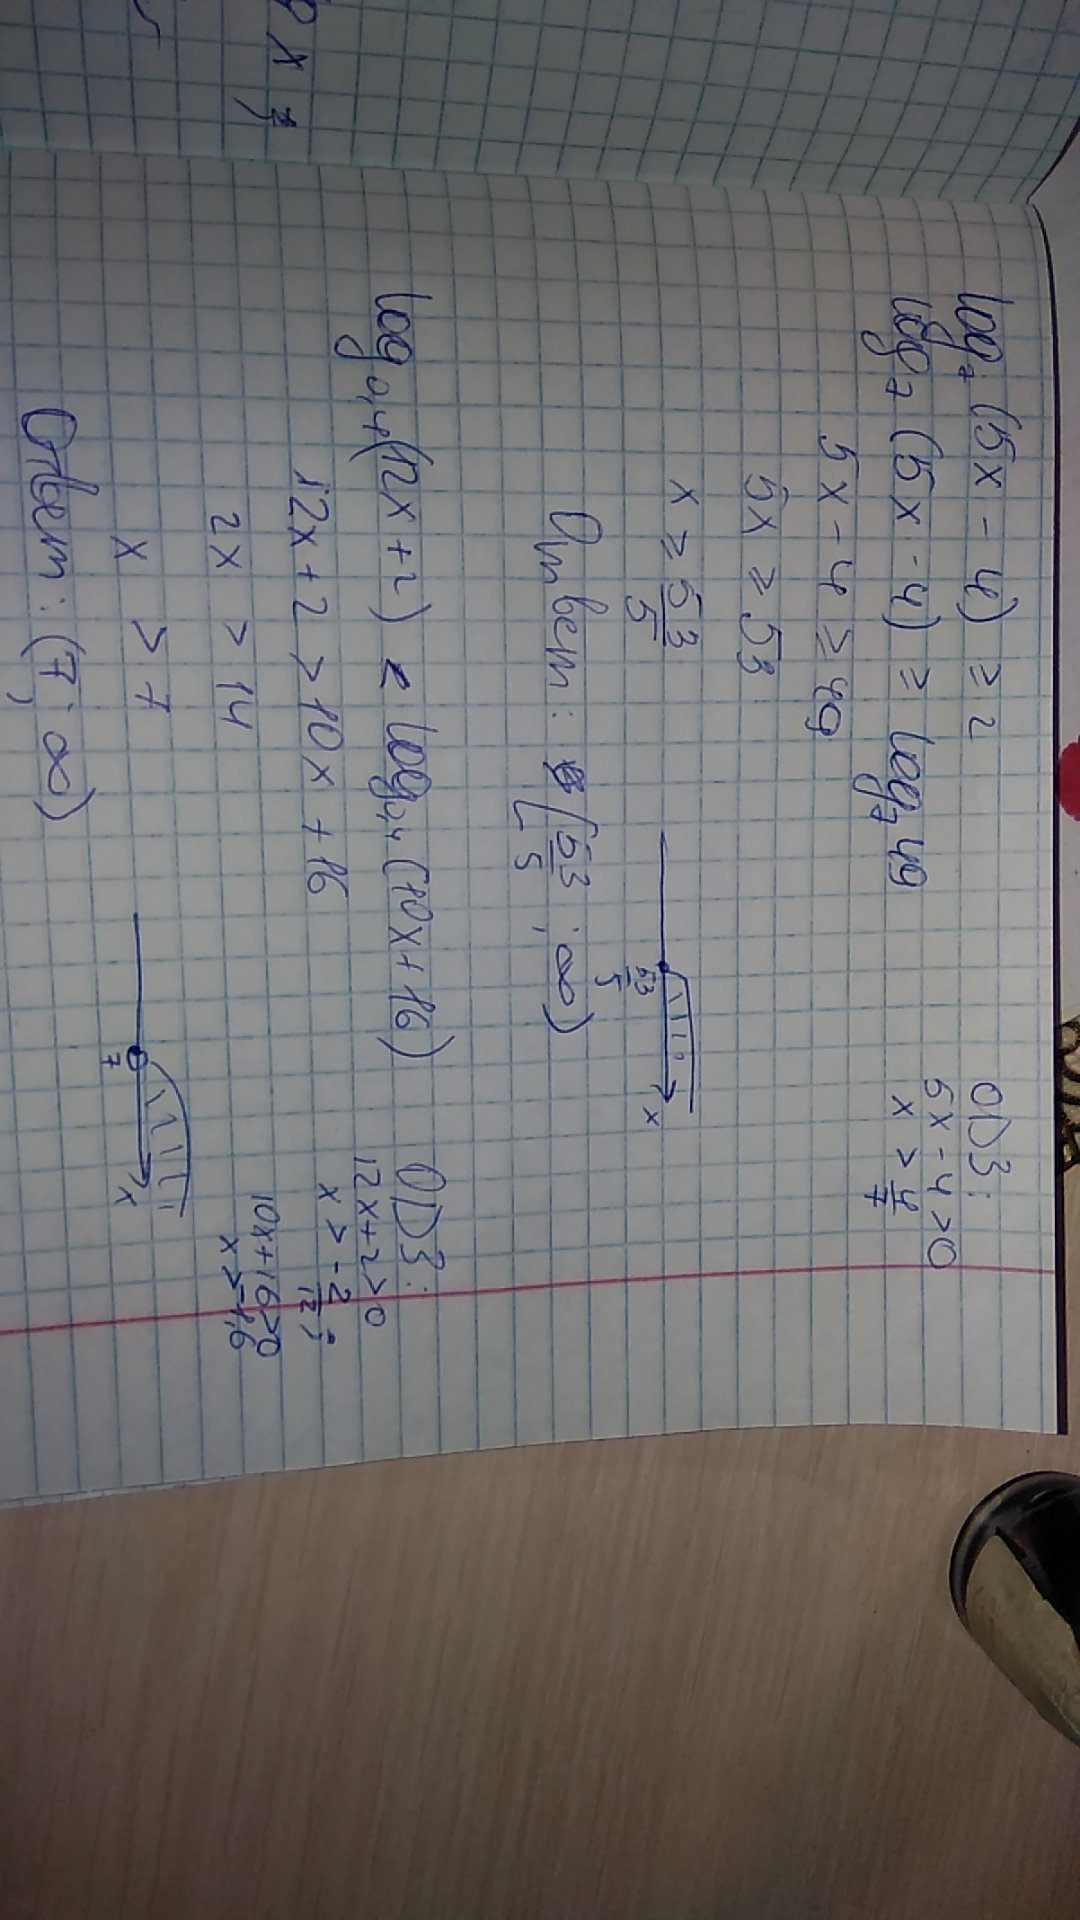 log₇ (5x - 4) ≥ 2
log₇ (5x - 4) ≥ log₇ 49
5x - 4 ≥ 49
5x ≥ 53
x ≥ 53/5
53/5 x
Ответ: [53/5 ; ∞)
ОДЗ:
5x - 4 > 0
x > 4/7
log₀,₄ (12x + 2) < log₀,₄ (10x + 16)
12x + 2 > 10x + 16
2x > 14
x > 7
7 x
Ответ: (7; ∞)
ОДЗ:
12x + 2 > 0
x > - 2/12 ;
10x + 16 > 0
x > -1,6